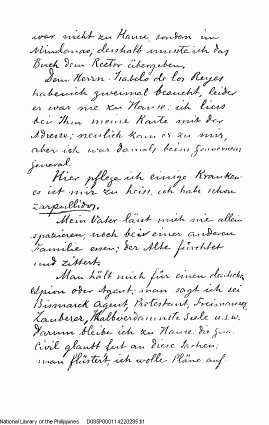 war nicht zu Hause, sondern im
Mindanao; deshalb musste ich das
Buch dem Rector übergeben.
Dem Herrn Isabelo de los Reyes
habe ich zweimal besucht, leider
er war nie zu Hause; ich liess
bei ihm meine Karte mit der
Adresse; neulich kam er zu mir,
aber ich war damals beim gouverneur
general.
Hier pflege ich einige Kranken
es ist mir zu heiss, ich habe schon
sarpullidos.
Mein Vater lässt mich nie allein
spazieren, noch bei einer anderen
Familie essen; der Alte fürchtet
und zittert.
Man hält mich für einen deutschen
espion oder Agent; man sagt ich sei
Bismarck Agent, Protestant, Freimaurer,
Zauberer, Halbverdammte Seele u.s.w.
Darum bleibe ich zu Hause. Die gua.
Civil glaubt fest an diese Sachen;
man flüstert, ich wolle Pläne auf
National Library of the Philippines